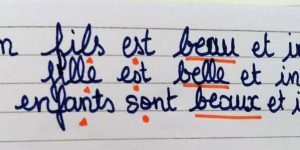 n fils est beau et i
fille est belle et in
enfants sont beaux et i